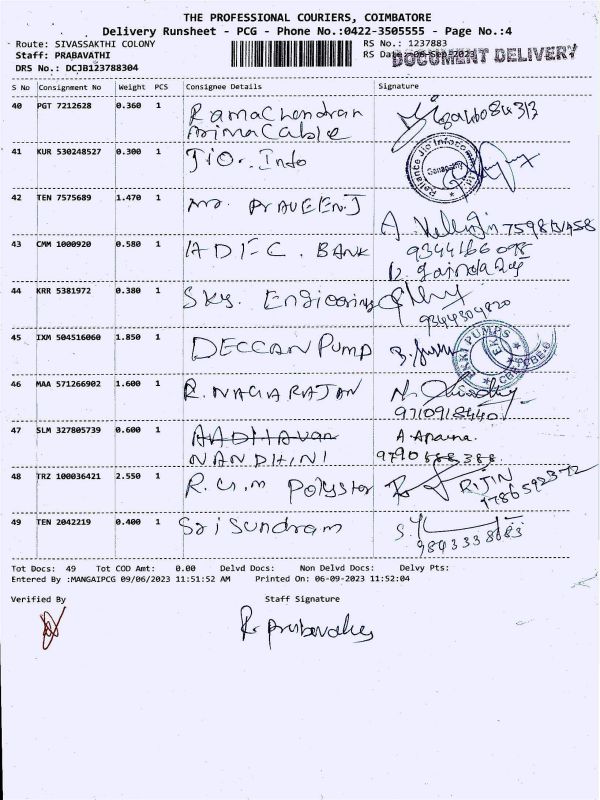 THE PROFESSIONAL COURIERS, COIMBATORE
Delivery Runsheet - PCG - Phone No.:0422-3505555 - Page No.:4
Route: SIVASSAKTHI COLONY RS No.: 1237883
Staff: PRABAVATHI RS Date: 06-Sep-2023 DOCUMENT DELIVERY
DRS No.: DCJB123788304
S No Consignment No Weight PCS Consignee Details Signature
40 PGT 7212628 0.360 1 Ramachendran
Arima Cable
41 KUR 530248527 0.300 1 Jio. Info
Reliance Jio Infocomm
42 TEN 7575689 1.470 1 Mr. PRAVEEN.J
43 CMM 1000920 0.580 1 HDFC. BANK 9344166098
44 KRR 5381972 0.380 1 Sky. Engicering
9344304820
45 IXM 504516060 1.850 1 DECCAN PUMP
EKKI PUMPS
46 MAA 571266902 1.600 1 R. NAGARAJAN
9710918440
47 SLM 327805739 0.600 1 AADHAVAN A. Aparna.
NANDHINI 9790688388
48 TRZ 100036421 2.550 1 R.G.M Polystor RIJIN
49 TEN 2042219 0.400 1 Sri Sundram
9843338683
Tot Docs: 49 Tot COD Amt: 0.00 Delvd Docs: Non Delvd Docs: Delvy Pts:
Entered By :MANGAIPCG 09/06/2023 11:51:52 AM Printed On: 06-09-2023 11:52:04
Verified By Staff Signature
R. Prabavathy